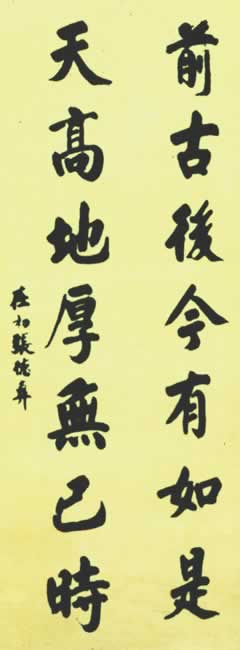 前古後今有如是
天高地厚無已時
在初張德彝